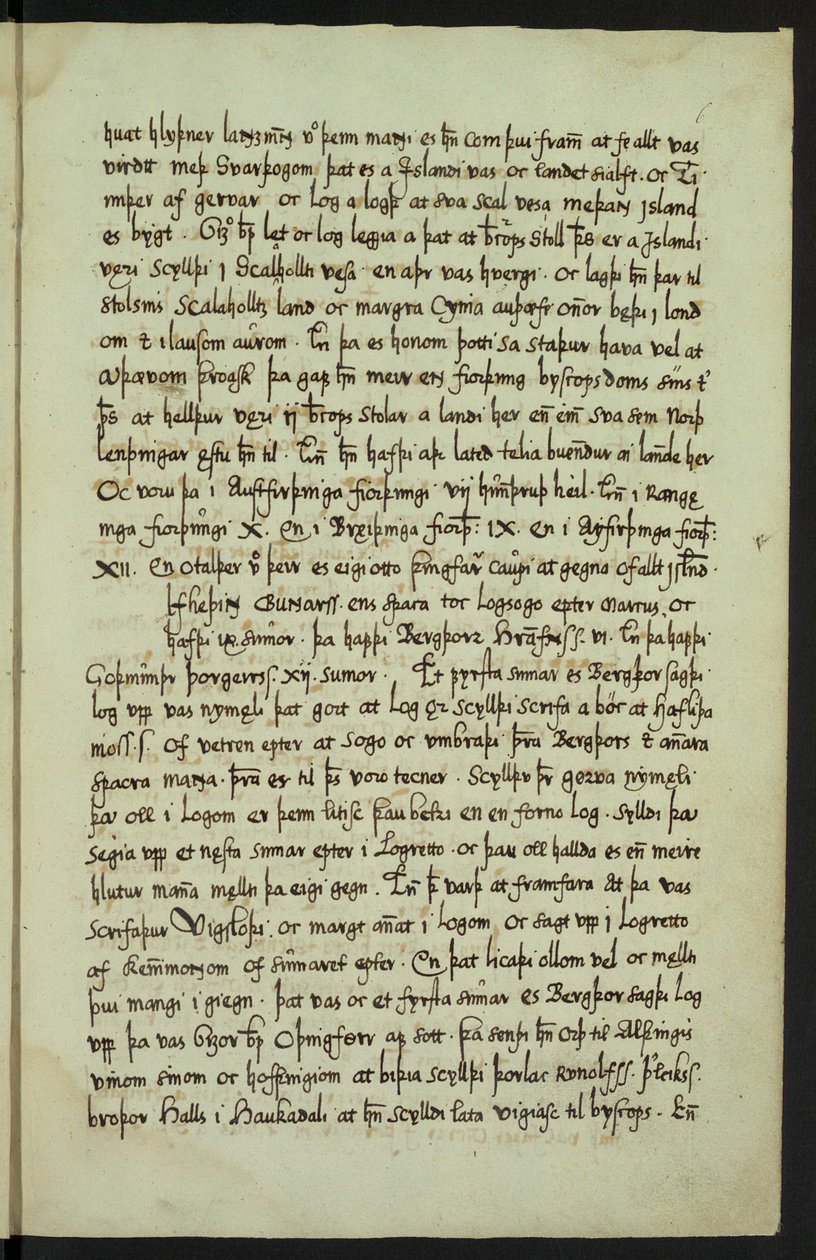 6
huat hlyþner lanꝺzm̅n vͦ þeim manni es hn̅ com þui fram̅ at fe allt vas
virdtt meþ Svarþogom þat es a Jslandi vas oc landet sialft. oc Ti
mþer af gervar oc Log a logþ at sva scal vesa meþan jsland
es bygt. Gizͦ bp̅ let oc log leggia a þat at b̅cops stoll þs̅ er a Jslandi
vęri scyllþi j Scalahollti vesa en aþr vas hvergi. oc lagþi hn̅ þar til
stolsins Scalaholltz land oc margra Cynia auþœfe on̅or bęþi j lond
om ⁊ i lausom aurom. En̅ þa es honom þotti sa staþur hava vel at
aþævom þroask þa gaf hn̅ meir en fiorþung byscops doms sins t̾
þs̅ at helldur vęri ij b̅cops stolar a landi her en̅ ein̅ sva sem Norþ
lenþingar ęstu hn̅ til. En̅ hn̅ hafþi aþr lated telia buen̅dur a lan̅de her
Oc voru þa i Austfirþinga fiorþungi vij hun̅druþ heil. En̅ i Rangę
inga fiorþungi X. En i Breiþfirþinga fiorþ: IX. en i Ayfirþinga fiorþ:
XII. En otalþer vͦ þeir es eigi otto þingfarͬ caupi at gegna of allt jsl̅nd.
Ulfheþinn Gunarss. ens spaca toc Logsogo epter Marcus, oc
hafþi ix sumor. þa hafþi Bergþorz Hrafnss. vi. En þa hafþi
Goþmunþr þorgeirss. xij. sumor. Et fyrsta sumar es Bergþor sagþi
log upp vas nymęli þat gort at Log ǫr scylldi scrifa a boc at Hafliþa
moss. s. Of vetren epter at sogo oc umbraþi þra̅ Bergþors ⁊ an̅ara
spacra manna. þra̅ es til þs̅ voro tecner. Scylldu þr̅ gørva nymęli
þau oll i Logom er þeim litisc þau betri en en forno log. Sylldi þa
Segia upp et nęsta sumar epter i Logretto. oc þau oll hallda es en̅ meire
hlutur man̅a męlti þa eigi gegn. En̅ þ̅ varþ at framfara At þa vas
Scrifaþur Vigsloþi. oc margt an̅at i Logom oc sagt upp j Logretto
af Kenn̅imonnom of sum̅aret epter. En þat licaþi ollom vel oc męlti
þui mangi i giegn. þat vas oc et fyrsta sumar es Bergþor sagþi Log
upp þa vas Gizor bp̅ Oþingførr af sott. þa senþi hn̅ orþ til Alþingis
vinom sinom oc hofþingiom at biþia scylldi þorlac Runolfss. þl̾eikss.
broþor Halls i Haukadali at hn̅ scylldi lata vigiasc til byscops. En̅